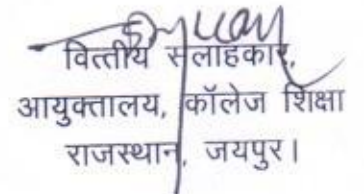 वित्तीय सलाहकार,
आयुक्तालय, कॉलेज शिक्षा
राजस्थान, जयपुर।